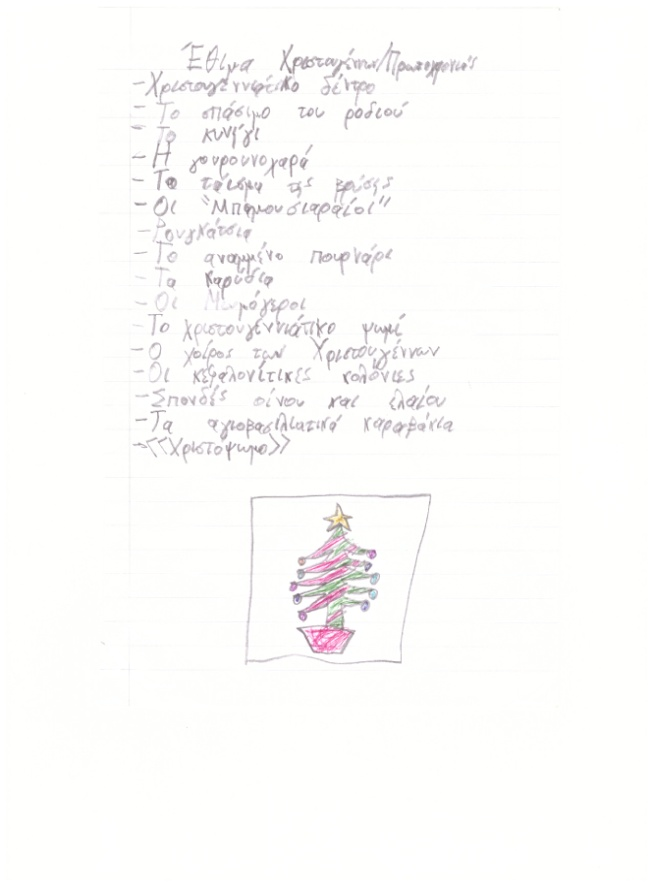 Έθιμα Χριστουγέννων/Πρωτοχρονιάς
-Χριστουγεννιάτικο δέντρο
- Το σπάσιμο του ροδιού
- Το κυνήγι
- Η γουρουνοχαρά
- Το τάισμα της βρύσης
- Οι "Μπαμπουσιαραίοι"
- Ρουγκάτσια
- Το αναμμένο πουρνάρι
- Τα καρύδια
- Οι Μωμόγεροι
- Το χριστουγεννιάτικο ψωμί
- Ο χοίρος των Χριστουγέννων
- Οι κεφαλονίτικες κολόνιες
- Σπονδές οίνου και ελαίου
- Τα αγιοβασιλιατικά καραβάκια
- <<Χριστόψωμο>>